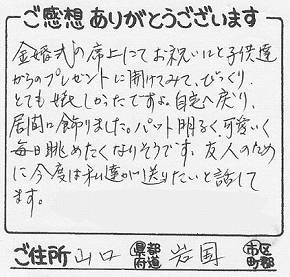 ご感想 ありがとうございます
金婚式の席上にてお祝いルと子供達
からのプレゼントに開けてみて、びっくり
とても嬉しかったですよ。自宅へ戻り、
居間に飾りました。パット明るく、可愛いく
毎日眺めたくなりそうです。友人のため
に今度は私達が送りたいと話して
ます。
ご住所 山口 都道府県 岩国 市区町郡